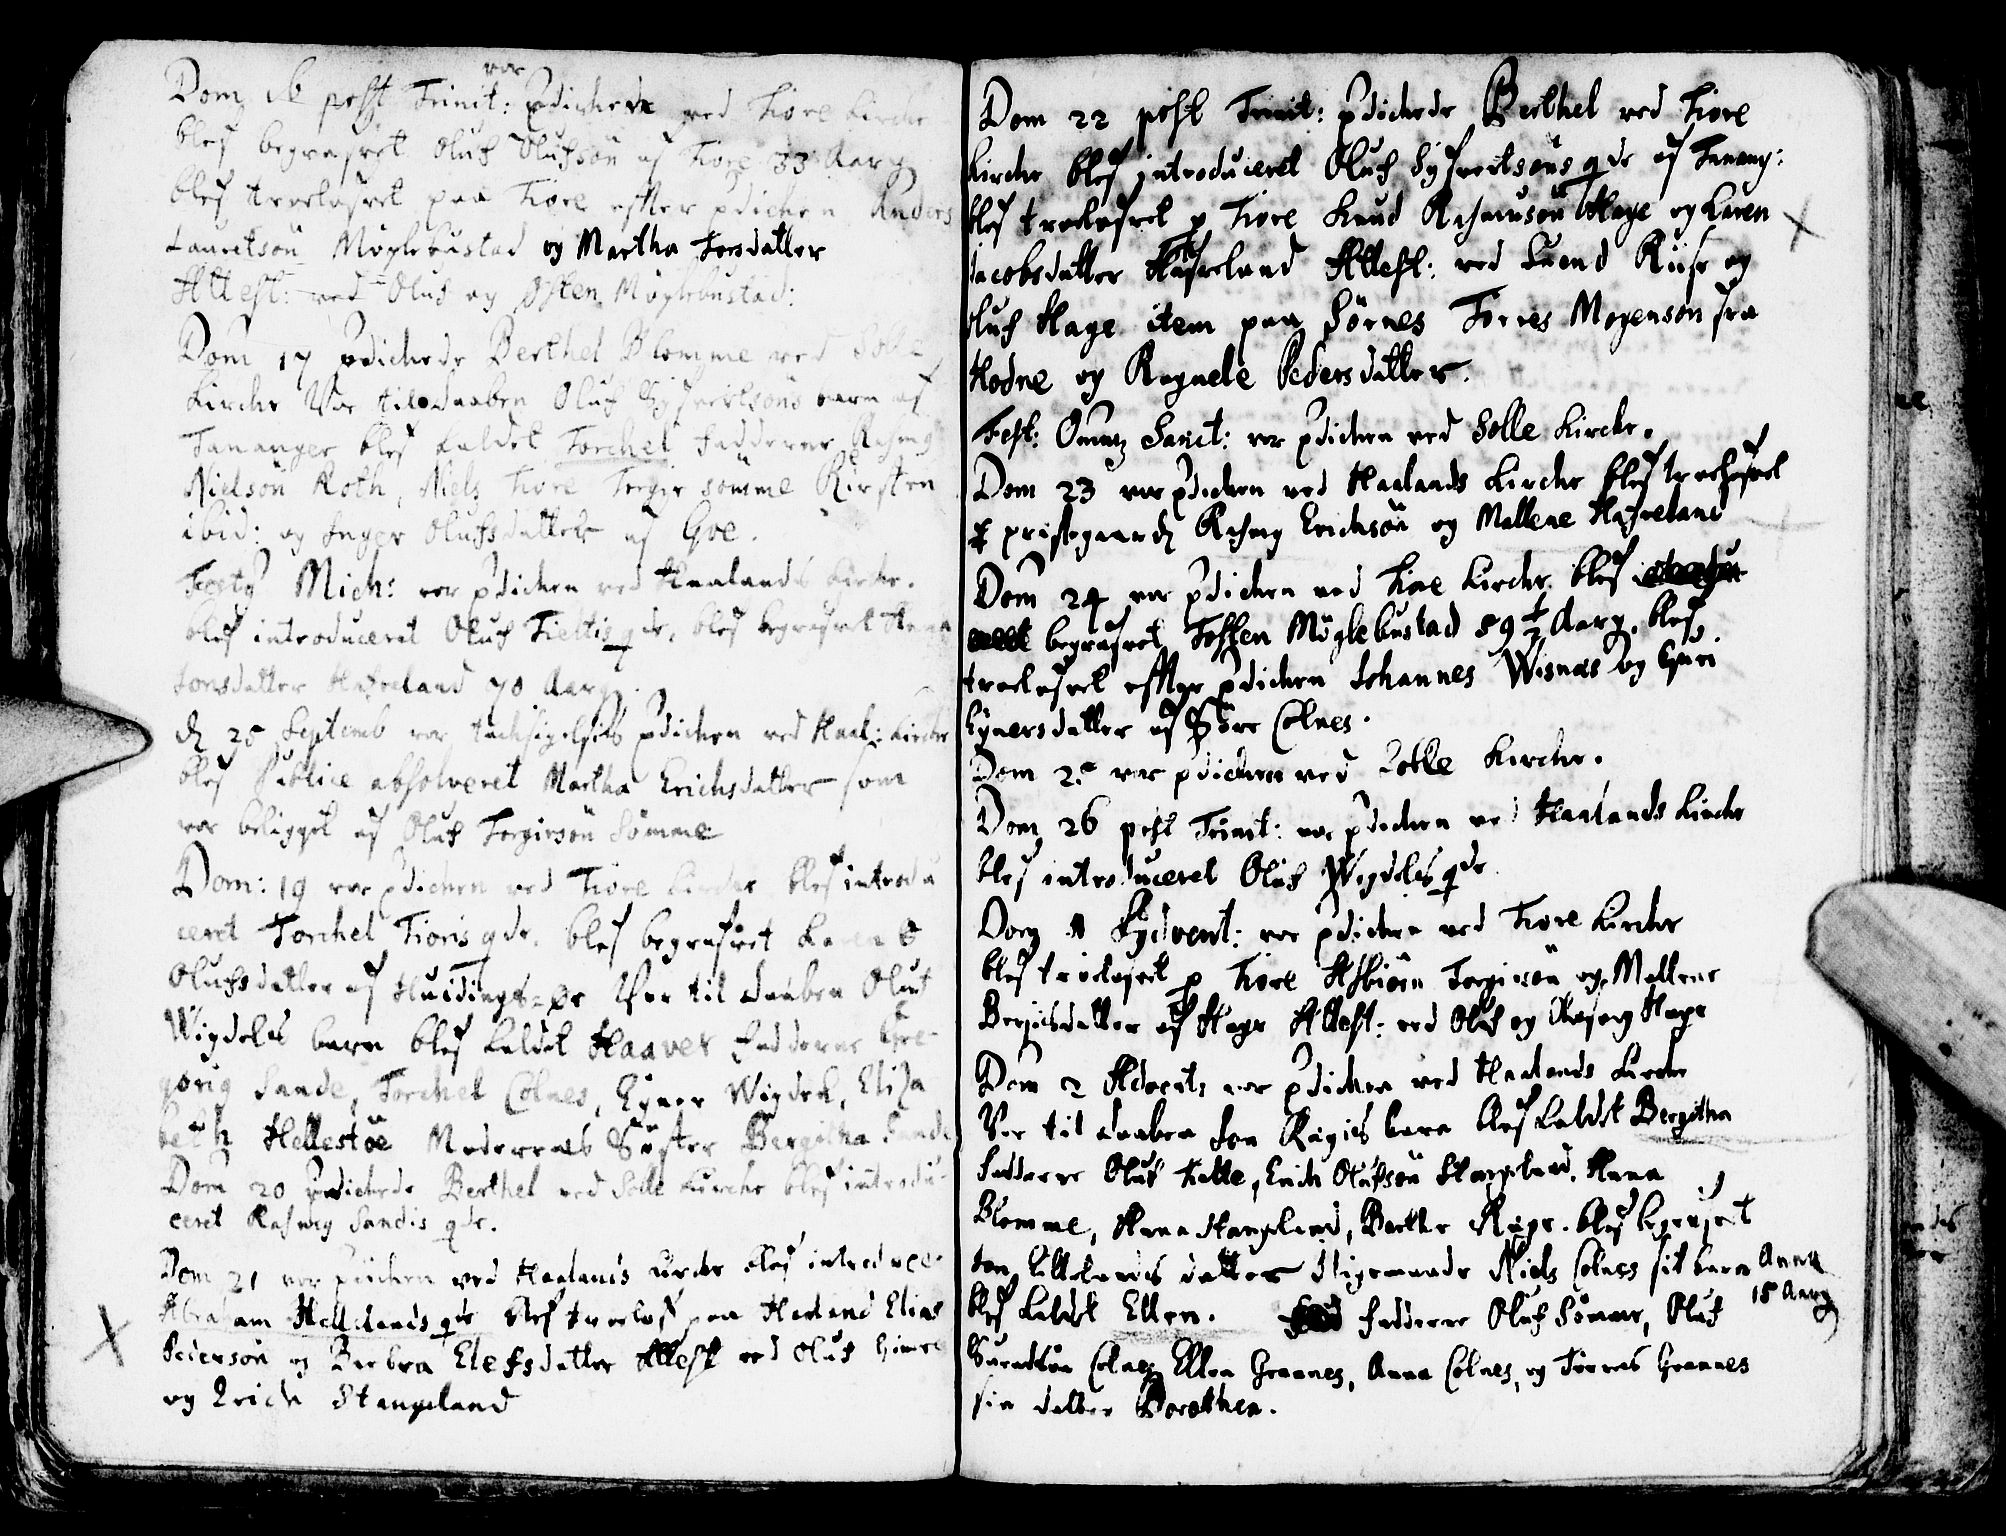 Dom 16 post Trinit: var prdichede ved Tiore Kirche
blef begrafvet Oluf Olufsön af Tiore 33 Aarg
blef trolofvet paa Tiore effter prdichen Anders
Lauretsön Möglebustad og Martha Torsdatter
Attest: ved Oluf og Östen Möglebustad:
Dom 17 prdichede Berthel Blomme ved Solle
Kirche Var til daaben Oluf Syfvertsöns barn af
Tananger blef kaldet Torchel fadderne Rasmg
Nielsön Roth, Niels Tiore Torgir sömme Kirsten
ibid: og Inger Olufsdatter af Goe.
Festo Mich: var prdichen ved Haalands Kirche.
blef introduceret Oluf Tieltis qde, blef begrafvet Anna
Jonsdatter Hafveland 70 Aarg.
d 25 Septemb var tachsigelsis prdichen ved Haal: Kirche
blef Publice absolveret Martha Erichsdatter som
var beligget af Oluf Torgirsön Sömme
Dom: 19 var prdichen ved Tiore Kirche blef introdu
ceret Torchel Tioris qde. blef begrafvet Karen
Olufsdatter af Huidings-öe Var til daaben Oluf
Wigdels barn blef kaldet Haaver fadderne Gre-
gorig Sande, Torchel Colnes, Eyner Wigdel, Elisa
beth Hellestöe Moderens Söster Bergitha Sande
Dom 20 prdichede Berthel ved Solle Kirche blef introdu-
ceret Rasmg Sandis qde.
Dom 21 var prdichen ved Haalands Kirche blef introduce-
Abraham Hellelands qde blef trolof paa Haaland Elias
Pedersön og Barbra Elefsdatter Attest ved Oluf Gimre
og Erich Stangeland
Dom 22 post Trinit: prdichede Berthel ved Tiore
Kirche blef introduceret Oluf Syfvertsöns qde af Tanang:
blef trolofvet p Tiore Knud Rasmusön Hage og Karen
Jacobsdatter Hafveland Attest: ved Suend Riise og
Oluf Hage item paa Sörnes Torres Mogensön fra
Hodne og Ragnele Pedersdatter.
Fest: Omn Sanct: var prdichen ved Solle Kirche.
Dom 23 var prdichen ved Haalands Kirche blef trolofvet
p pristegaard Rasmg Erichsön og Mallene Hafveland
Dom 24 var prdichen ved Tiore Kirche. blef
begrafvet Tosten Möglebustad 89 1/2 Aarg. blef
trolofvet effter prdichen Johannes Wisnæs og Guri
Eynersdatter af Söre Colnes.
Dom 25 var prdichen ved Solle Kirche.
Dom 26 post Trinit: var prdichen ved Haalands Kirche
blef introduceret Oluf Wigdels qde
Dom 1 Advent: var prdichen ved Tiore Kirche
blef trolofvet p Tiore Asbiörn Torgirsön og Mallene
Bergisdatter af Hage Attest: ved Oluf og Rasmg Hage
Dom 2 Advent: var prdichen ved Haalands Kirche
Var til daaben Jon Rægies barn blef kaldet Bergitha
fadderne Oluf Tielte, Erich Olufsön Stangeland, Anna
Blomme, Anna Stangeland, Berthe Ræge. blef begrafvet
Jon datter Anna
15 Aarg
ligemaade Niels Colnes sit barn
blef kaldet Ellen. fadderne Oluf Sömme, Oluf
Suendsön Colnes Ellen Grannes, Anna Colnes, og Torres Grannes
sin datter Dorothea.